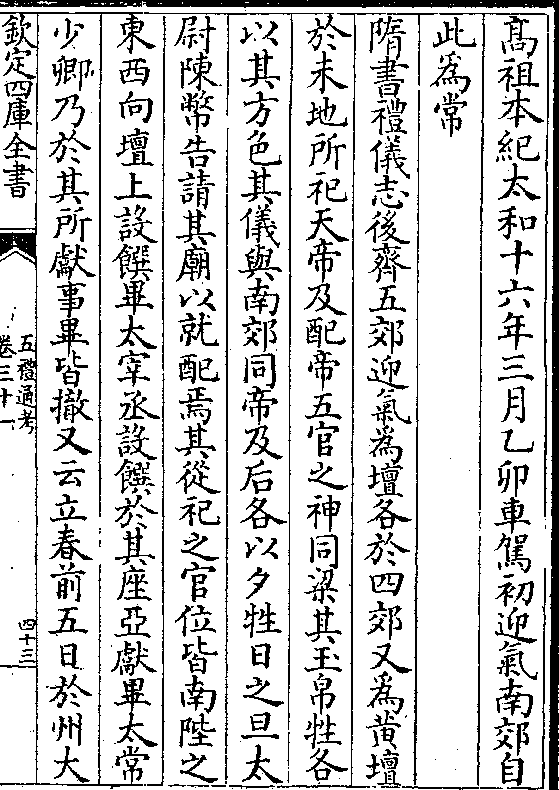 髙祖本紀太和十六年三月乙卯車駕初迎氣南郊自
此為常
隋書禮儀志後齊五郊迎氣為壇各於四郊又為黃壇
於未地所祀天帝及配帝五官之神同梁其玉帛牲各
以其方色其儀與南郊同帝及后各以夕牲日之旦太
尉陳幣告請其廟以就配焉其從祀之官位皆南陛之
東西向壇上設饌畢太宰丞設饌於其座亞獻畢太常
少卿乃於其所獻事畢皆撤又云立春前五日於州大
欽定四庫全書
五禮通考
卷三十一
四十三